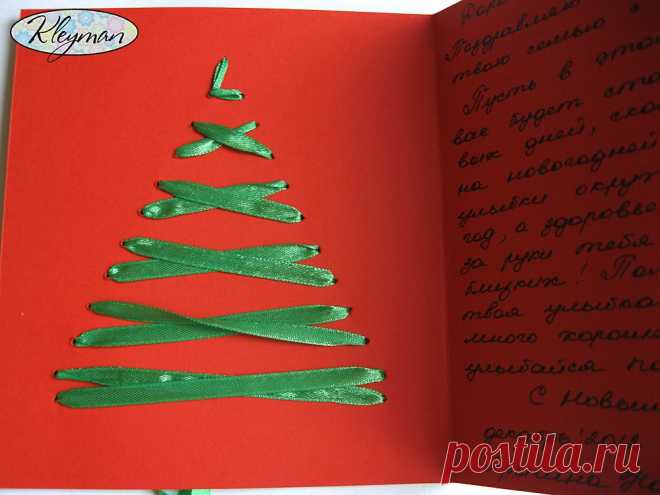 Kleyman
Поздравляю
твою семью с
Пусть в этом
вас будет
вых дней, ска
на новогодней
улыбки окруж
год, а здоровье
за руки тебя
близких! По
твоя улыбка
много хороши
улыбайся по
С Новым
postila.ru